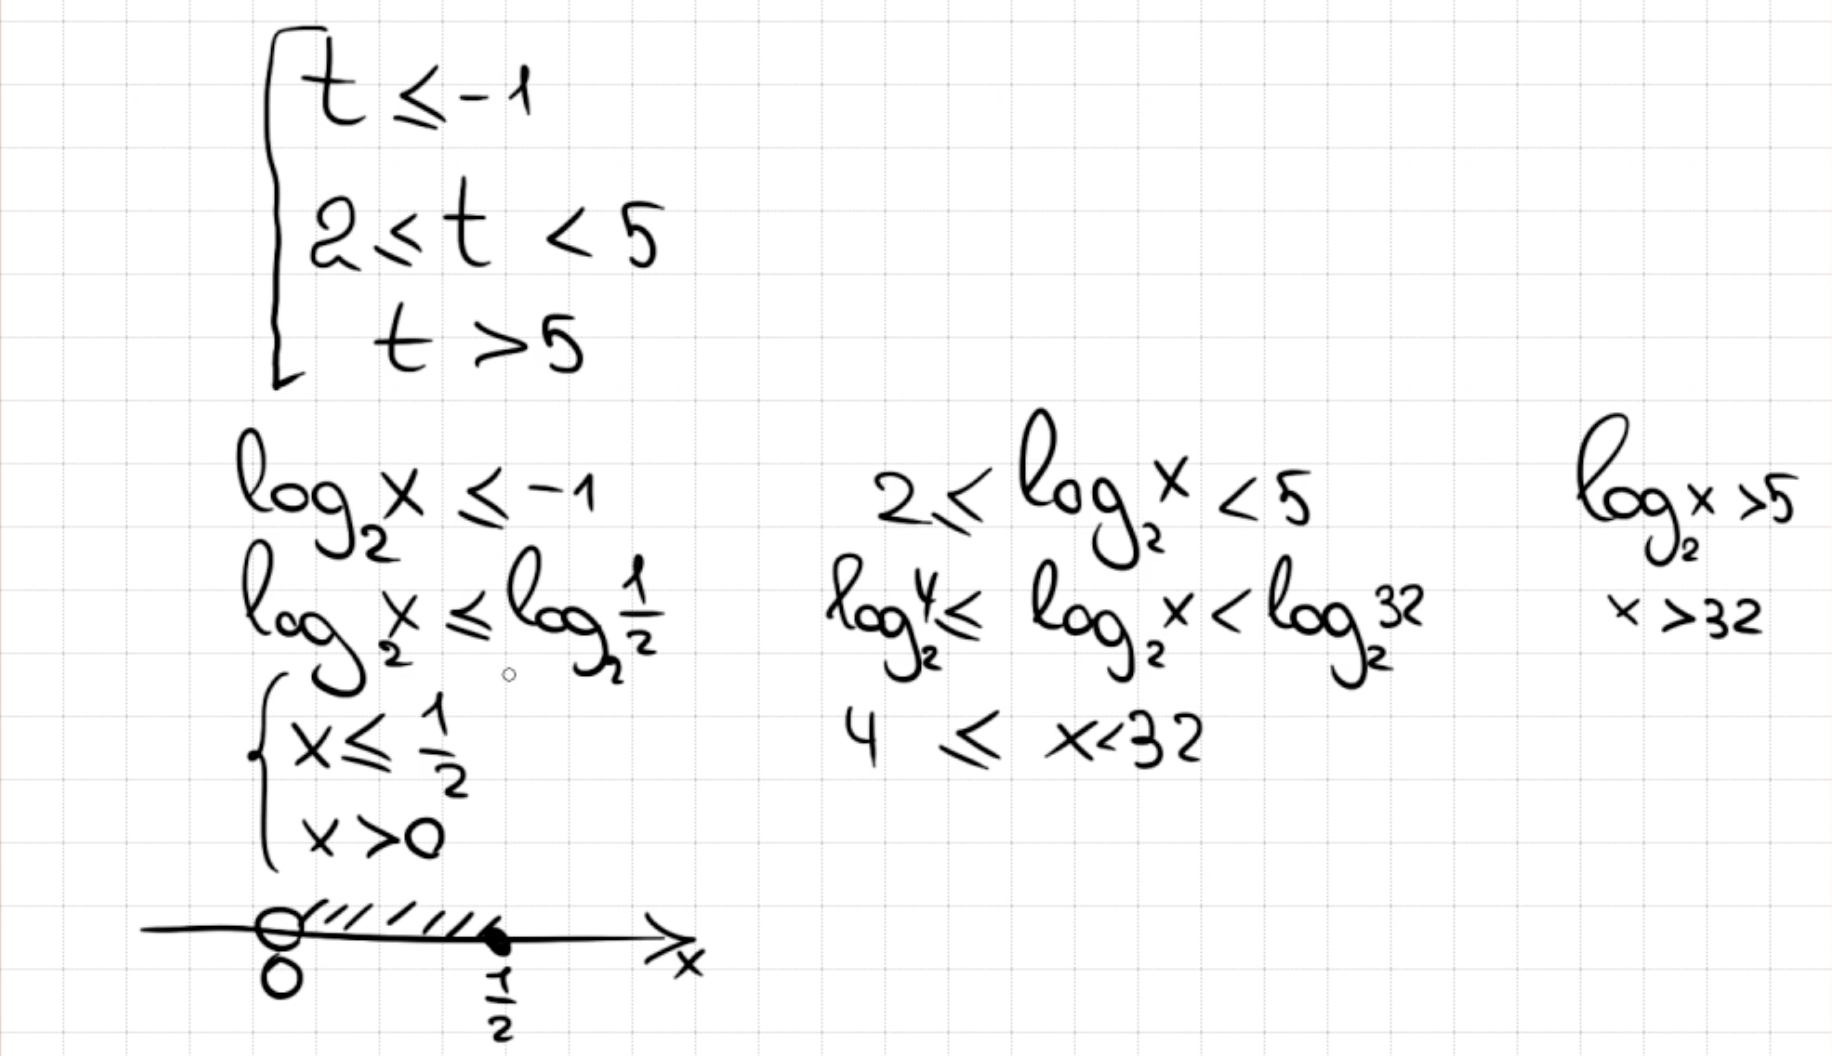 t ≤ -1
2 ≤ t < 5
t > 5
log₂x ≤ -1
log₂x ≤ log₂ 1/2
x ≤ 1/2
x > 0
0 1/2 x
2 ≤ log₂x < 5
log₂4 ≤ log₂x < log₂32
4 ≤ x < 32
log₂x > 5
x > 32